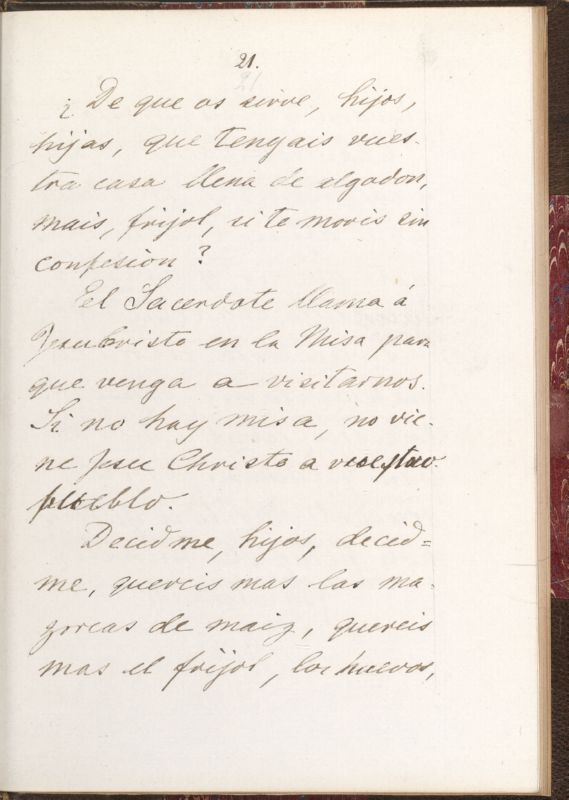 21.
¿ De que os sirve, hijos,
hijas, que tengais vues-
tra casa llena de algodon,
mais, frijol, si te moris sin
confesion ?
El Sacerdote llama á
Jesu Cristo en la Misa para
que venga a visitarnos.
Si no hay misa, no vie-
ne Jesu Christo a vuestro
pueblo.
Decidme, hijos, decid=
me, quereis mas las ma-
zorcas de maiz, quereis
mas el frijol, los huevos,